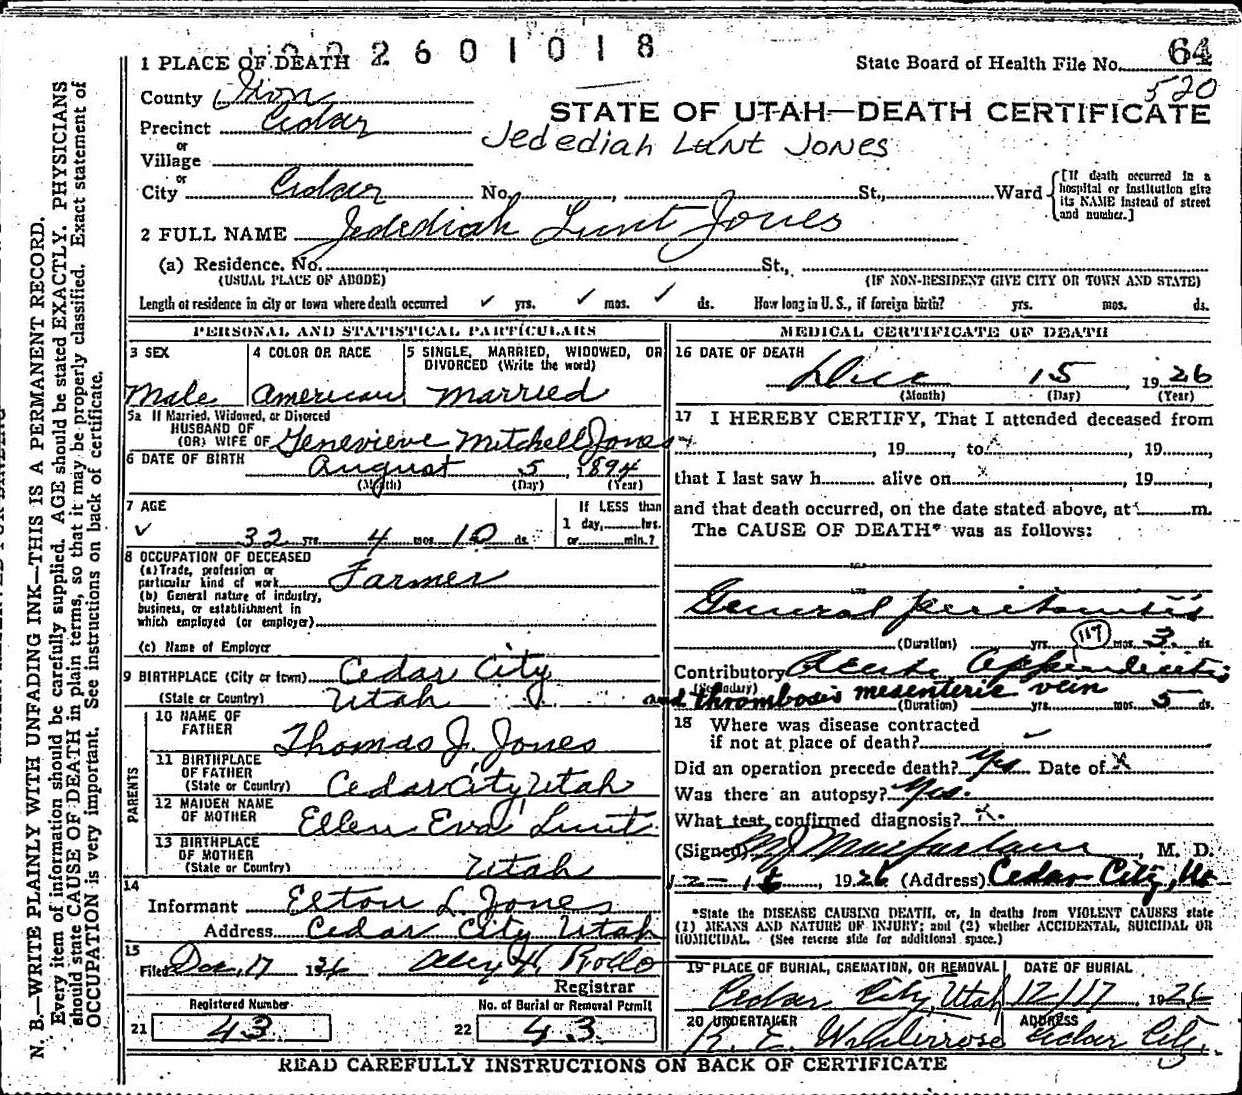 2601018
64
1 PLACE OF DEATH
State Board of Health File No.
520
County Iron
STATE OF UTAH—DEATH CERTIFICATE
Precinct Cedar
or
Jedediah Lunt Jones
Village
or
City Cedar No. , St., Ward
[If death occurred in a hospital or institution give its NAME instead of street and number.]
2 FULL NAME Jedediah Lunt Jones
(a) Residence. No. St.,
(USUAL PLACE OF ABODE) (IF NON-RESIDENT GIVE CITY OR TOWN AND STATE)
Length of residence in city or town where death occurred ✓ yrs. ✓ mos. ✓ ds. How long in U. S., if foreign birth? yrs. mos. ds.
PERSONAL AND STATISTICAL PARTICULARS
3 SEX
Male
4 COLOR OR RACE
American
5 SINGLE, MARRIED, WIDOWED, OR
DIVORCED (Write the word)
Married
5a If Married, Widowed, or Divorced
HUSBAND OF
(OR) WIFE OF Genevieve Mitchell Jones
6 DATE OF BIRTH August 5, 1894
(Month) (Day) (Year)
7 AGE
✓ 32 yrs. 4 mos. 10 ds.
If LESS than
1 day, hrs.
or min.?
8 OCCUPATION OF DECEASED
(a) Trade, profession or
particular kind of work Farmer
(b) General nature of industry,
business, or establishment in
which employed (or employer)
(c) Name of Employer
9 BIRTHPLACE (City or town) Cedar City
(State or Country) Utah
PARENTS
10 NAME OF
FATHER Thomas J. Jones
11 BIRTHPLACE
OF FATHER
(State or Country) Cedar City Utah
12 MAIDEN NAME
OF MOTHER Ellen Eva Lunt
13 BIRTHPLACE
OF MOTHER
(State or Country) Utah
14
Informant Elton L. Jones
Address Cedar City Utah
15
Filed Dec. 17 1926 Rollo
Registrar
Registered Number
21 43
No. of Burial or Removal Permit
22 43
MEDICAL CERTIFICATE OF DEATH
16 DATE OF DEATH
Dec 15, 1926
(Month) (Day) (Year)
17 I HEREBY CERTIFY, That I attended deceased from
, 19 , to , 19 ,
that I last saw h alive on , 19 ,
and that death occurred, on the date stated above, at m.
The CAUSE OF DEATH* was as follows:
General peritonitis
(Duration) yrs. 117 mos. 3 ds.
Contributory Acute Appendicitis
(Secondary)
and thrombosis mesenteric vein
(Duration) yrs. mos. 5 ds.
18 Where was disease contracted
if not at place of death? ✓
Did an operation precede death? Yes Date of X
Was there an autopsy? Yes.
What test confirmed diagnosis? X.
(Signed) M J Macfarlane, M. D.
12-16, 1926 (Address) Cedar City, Ut
*State the DISEASE CAUSING DEATH, or, in deaths from VIOLENT CAUSES state
(1) MEANS AND NATURE OF INJURY; and (2) whether ACCIDENTAL, SUICIDAL OR
HOMICIDAL. (See reverse side for additional space.)
19 PLACE OF BURIAL, CREMATION, OR REMOVAL
Cedar City, Utah
DATE OF BURIAL
12/17, 1926
20 UNDERTAKER
ADDRESS
Cedar City.
READ CAREFULLY INSTRUCTIONS ON BACK OF CERTIFICATE
N. B.—WRITE PLAINLY WITH UNFADING INK—THIS IS A PERMANENT RECORD.
Every item of information should be carefully supplied. AGE should be stated EXACTLY. PHYSICIANS
should state CAUSE OF DEATH in plain terms, so that it may be properly classified. Exact statement of
OCCUPATION is very important. See instructions on back of certificate.